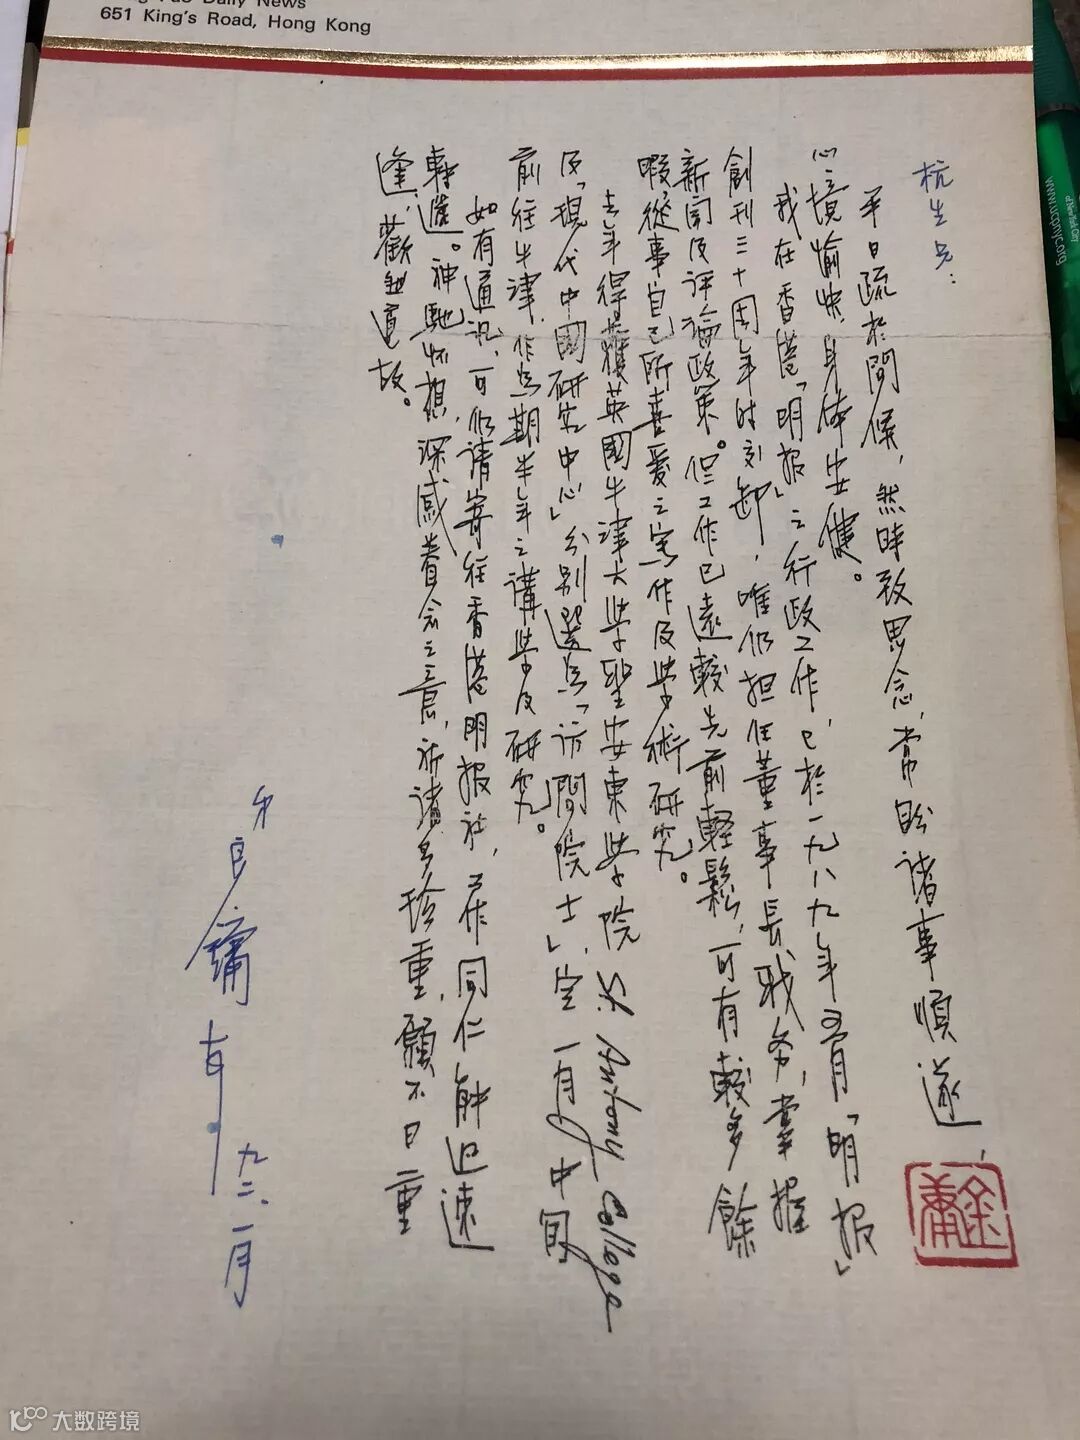 Daily News
651 King's Road, Hong Kong
杭生兄：
平日疏於問候，然時致思念，常盼諸事順遂，
心境愉快，身体安健。
我在香港「明报」之行政工作，已於一九八九年五月「明报」
創刊三十周年时交卸，唯仍担任董事長職务，掌握
新聞及评論政策。但工作已遠較先前輕鬆，可有較多餘
暇從事自己所喜爱之寫作及學術研究。
去年得獲英國牛津大學聖安東學院 St. Antony College
及「現代中國研究中心」分别選為「访問院士」，定一月中旬
前往牛津，作為期半年之講學及研究。
如有通訊，可仍请寄往香港明报社，工作同仁能迅速
轉遞。神馳怀想，深感眷念之意，祈諸多珍重，願不日重
逢，歡敘道故。
弟
良鏞
九二、一月
www.cdpf.org
大数跨境